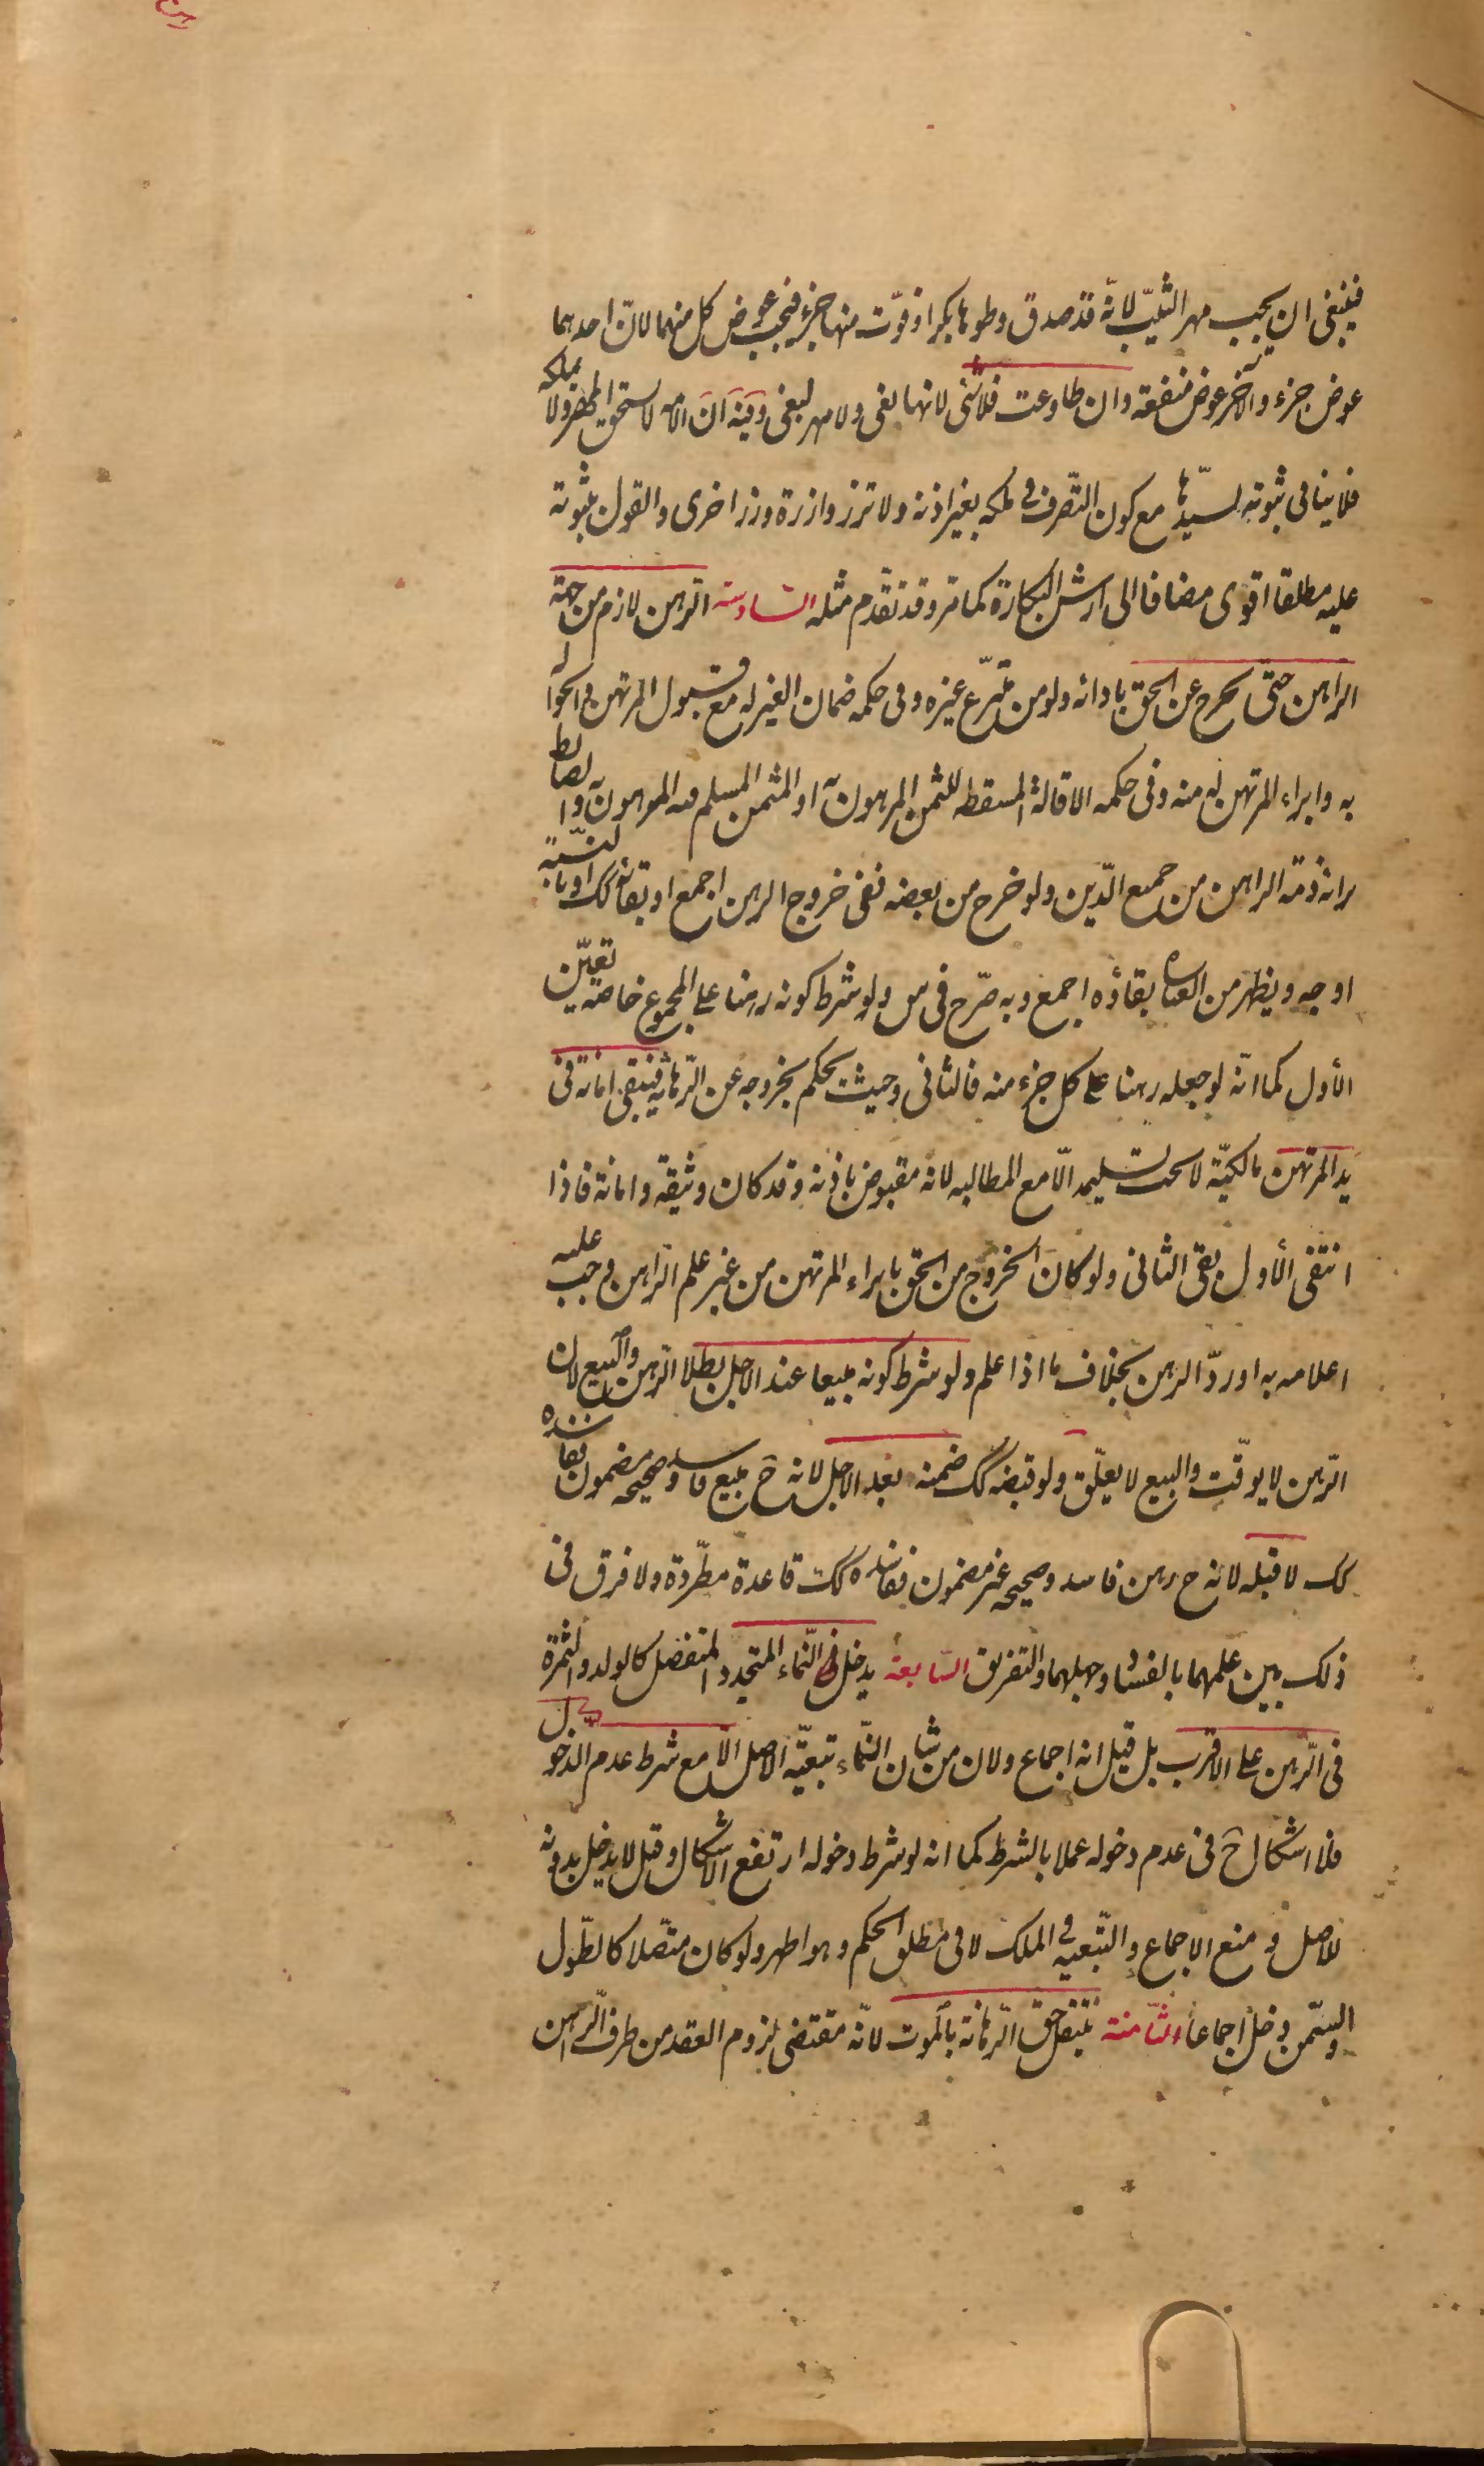 رهن
فينبغى ان يجب مهر الثيّب لانّه قد صدق وطوها بكرا و فوّت منها جزء فيجب عوض كل منهما لانّ احدهما
عوض جزء و الآخر عوض منفعة وان طاوعت فلا شئ لانها بغى ولا مهر لبغى وفيه ان الامه لا تستحق المهر ولا تملكه
فلا ينافى ثبوته لسيّدها مع كون التّصرف فى ملكه بغير اذنه ولا تزر وازرة وزر اخرى والقول بثبوته
عليه مطلقا اقوى مضافا الى ارش البكارة كما مر وقد تقدّم مثله السّادسة الرّهن لازم من جهة
الراهن حتّى يخرج عن الحق بادائه ولو من متبرّع غيره وفى حكمه ضمان الغير له مع قبول المرتهن والحوالة
به وابراء المرتهن له منه وفى حكمه الاقالة المسقطه للثمن المرهون به او المثمن المسلم فيه المرهون به والضابط
برائة ذمّة الراهن من جميع الدّين ولو خرج من بعضه ففى خروج الرهن اجمع او بقائه كك او بالنّسبة
اوجه ويظهر من العبارة بقاؤه اجمع وبه صّرح فى س ولو شرط كونه رهنا على المجموع خاصّة تعيّن
الأول كما انّه لو جعله رهنا على كل جزء منه فالثانى وحيث يحكم بخروجه عن الرّهانيه فيبقى امانة فى
يد المرتهن مالكيّة لا يجب تسليمه الّا مع المطالبه لانه مقبوض باذنه وقد كان وثيقة وامانة فاذا
انتفى الأول بقى الثانى ولو كان الخروج من الحق بابراء المرتهن من غير علم الرّاهن وجب عليه
اعلامه به او ردّ الرهن بخلاف ما اذا علم ولو شرط كونه مبيعا عند الاجل بطلا الرّهن والبيع لان
الرّهن لا يوقّت والبيع لا يعلّق ولو قبضه كك ضمنه بعد الاجل لانه ح مبيع فاسد وصحيحه مضمون ففاسده
كك لا قبله لانه ح رهن فاسد وصحيحه غير مضمون ففاسده كك قاعدة مطّردة ولا فرق فى
ذلك بين علمهما بالفساد وجهلهما والتفريق السّابعة يدخل النّماء المتجدد المنفصل كالولد والثمرة
فى الرّهن على الاقرب بل قيل انه اجماع ولان من شان النّماء تبعيّة الاصل الّا مع شرط عدم الدّخول
فلا اشكال ح فى عدم دخوله عملا بالشرط كما انه لو شرط دخوله ارتفع الاشكال وقيل لا يدخل بدونه
للاصل ومنع الاجماع والتّبعيه فى الملك لا فى مطلق الحكم وهو اظهر ولو كان متّصلا كالطّول
والسّمن دخل اجماعا الثّامنة ينتقل حق الرّهانة بالموت لانّه مقتضى لزوم العقد من طرف الرّاهن